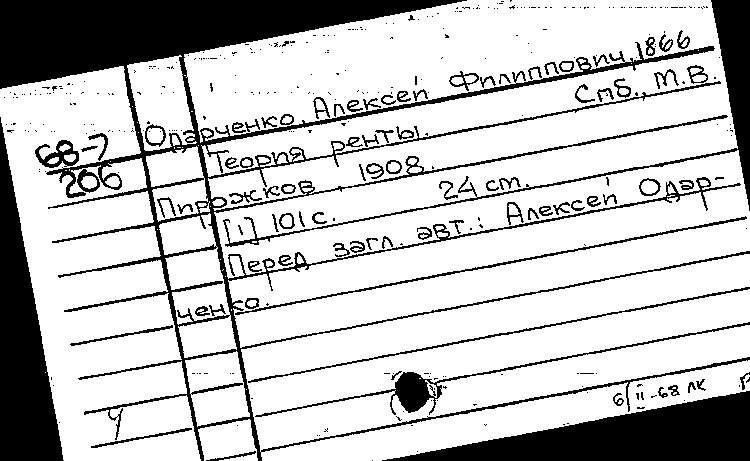 Одарченко, Алексей Филиппович, 1866
68-7
206
Теория ренты. Спб., М.В.
Пирожков, 1908.
[1], 101 с. 24 cm.
Перед загл. авт.: Алексей Одар-
ченко.
6/II-68 ЛК